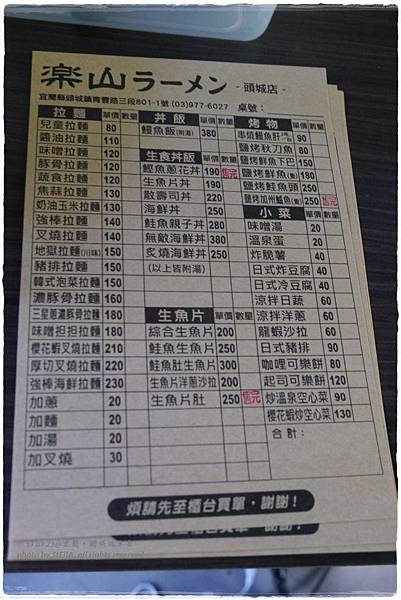 楽山ラーメン -頭城店-
宜蘭縣頭城鎮青雲路三段801-1號 (03)977-6027 桌號：
拉麵 單價 數量
兒童拉麵 80
醬油拉麵 110
味噌拉麵 120
豚骨拉麵 120
蔬食拉麵 120
焦蒜拉麵 130
奶油玉米拉麵 130
強棒拉麵 140
叉燒拉麵 140
地獄拉麵(川味) 150
豬排拉麵 150
韓式泡菜拉麵 150
濃豚骨拉麵 160
三星蔥濃豚骨拉麵 180
味噌担担拉麵 180
櫻花蝦叉燒拉麵 210
厚切叉燒拉麵 220
強棒海鮮拉麵 230
加蔥 20
加麵 20
加湯 20
加叉燒 30
丼飯 單價 數量
鰻魚飯(附湯) 380
生食丼飯 單價 數量
鰹魚蔥花丼 190 售完
生魚片丼 190
散壽司丼 220
海鮮丼 250
鮭魚親子丼 280
無敵海鮮丼 380
炙燒海鮮丼 250
(以上皆附湯)
生魚片 單價 數量
綜合生魚片 200
鮭魚生魚片 300
鮭魚肚生魚片 300
生魚片洋蔥沙拉 200
生魚片肚 250 售完
烤物 單價 數量
串燒鰻魚肝 90
鹽烤秋刀魚 80
鹽烤鮮魚下巴 150
鹽烤鮮魚(隻) 180
鹽烤鮭魚頭 250
鹽烤加州鱸魚(隻) 250 售完
小菜 單價 數量
味噌湯 20
溫泉蛋 20
炸脆薯 40
日式炸豆腐 40
日式冷豆腐 40
涼拌日蔬 60
涼拌洋蔥 60
龍蝦沙拉 60
日式豬排 90
咖哩可樂餅 80
起司可樂餅 120
炒溫泉空心菜 90
櫻花蝦炒空心菜 130
合計：
煩請先至櫃台買單，謝謝！